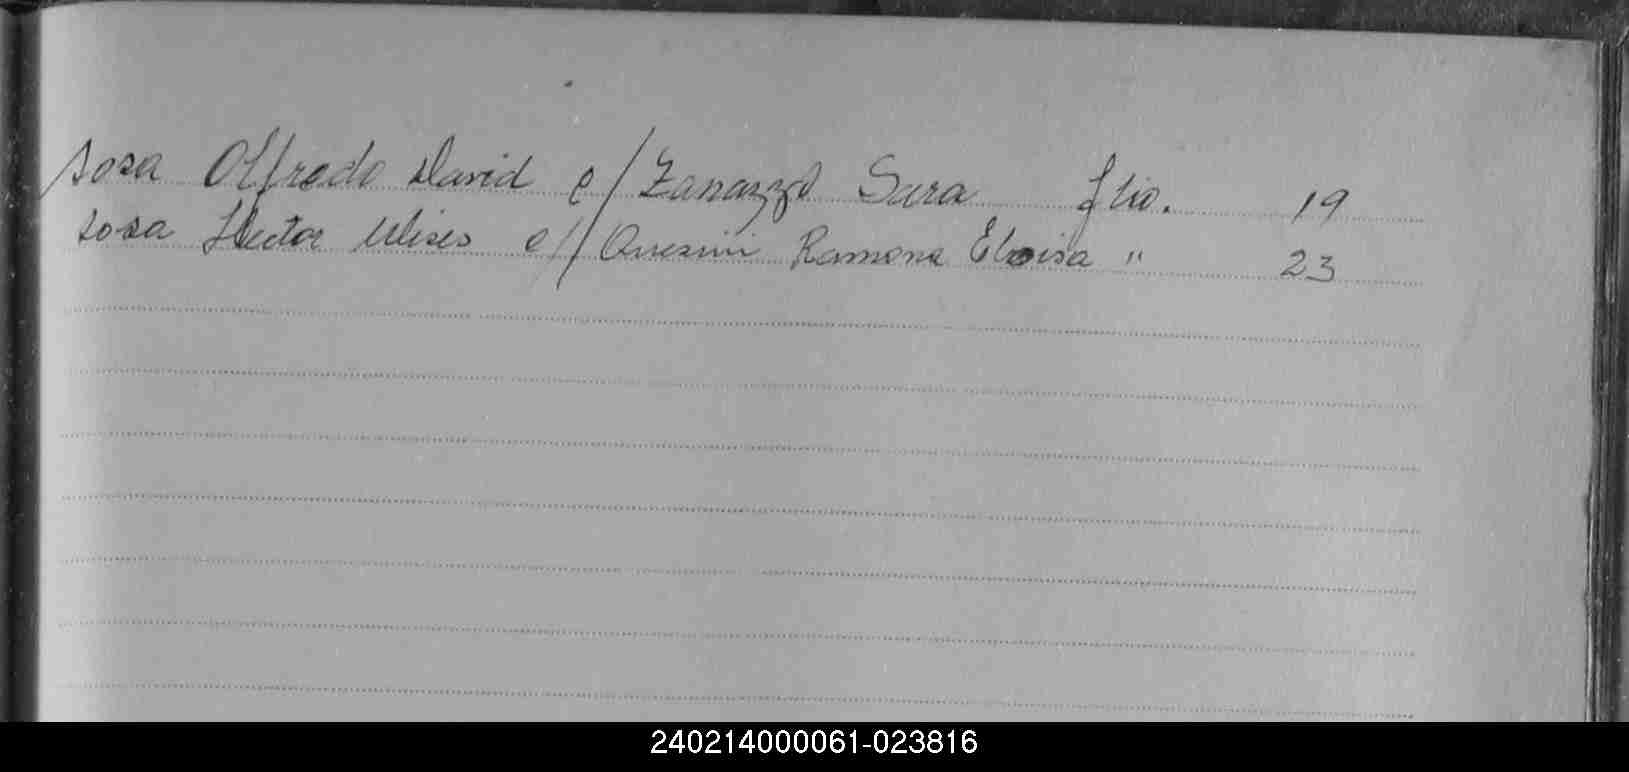 Sosa Alfredo David c/ Zanazzo Sara flio. 19
Sosa Hector Ulises c/ Ramona Eloisa " 23
240214000061-023816